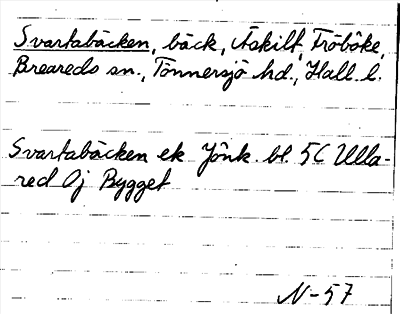 Svartabäcken, bäck, Askilt, Fröböke,
Breareds sn., Tönnersjö hd., Hall. l.
Svartabäcken ek Jönk. bl. 5C Ulla-
red Oj Bygget
N-57